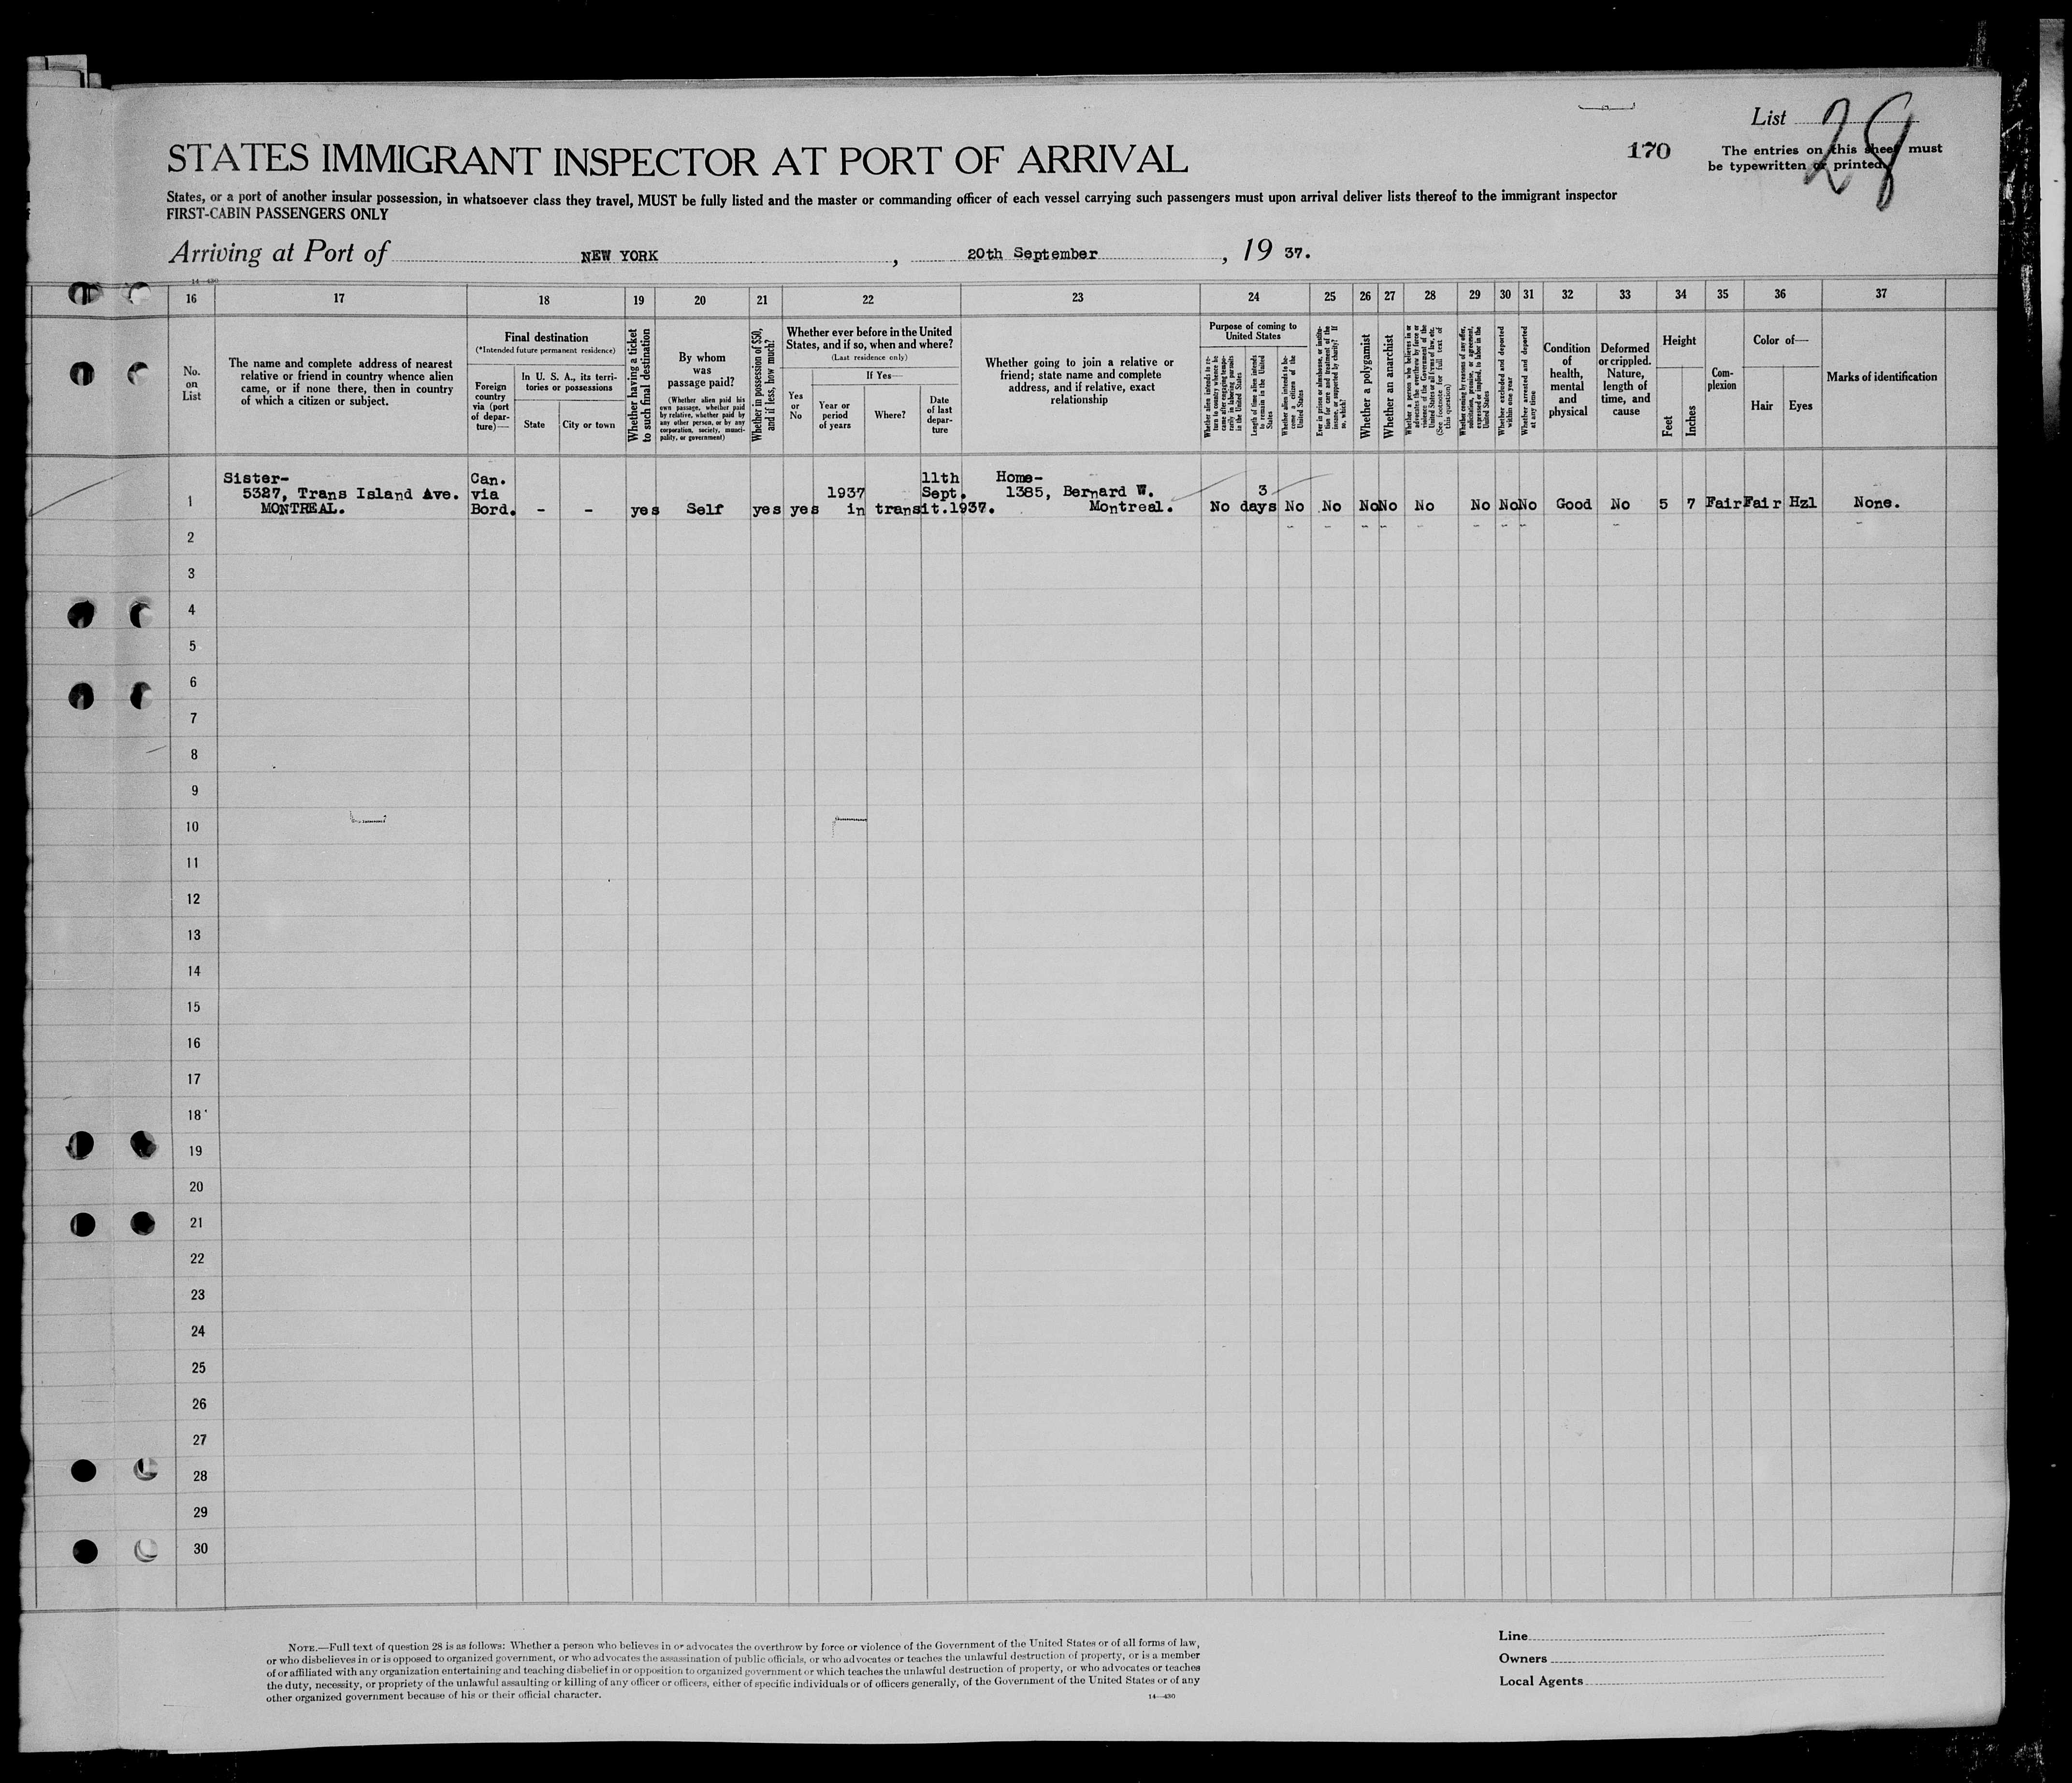 List 28
STATES IMMIGRANT INSPECTOR AT PORT OF ARRIVAL
170
The entries on this sheet must
be typewritten or printed
States, or a port of another insular possession, in whatsoever class they travel, MUST be fully listed and the master or commanding officer of each vessel carrying such passengers must upon arrival deliver lists thereof to the immigrant inspector
FIRST-CABIN PASSENGERS ONLY
Arriving at Port of NEW YORK, 20th September, 19 37.
14—430
16 17 18 19 20 21 22 23 24 25 26 27 28 29 30 31 32 33 34 35 36 37
No.
on
List
The name and complete address of nearest
relative or friend in country whence alien
came, or if none there, then in country
of which a citizen or subject.
Final destination
(*Intended future permanent residence)
Foreign
country
via (port
of depar-
ture)—
In U. S. A., its terri-
tories or possessions
State
City or town
Whether having a ticket
to such final destination
By whom
was
passage paid?
(Whether alien paid his
own passage, whether paid
by relative, whether paid by
any other person, or by any
corporation, society, munici-
pality, or government)
Whether in possession of $50,
and if less, how much?
Whether ever before in the United
States, and if so, when and where?
(Last residence only)
Yes
or
No
If Yes—
Year or
period
of years
Where?
Date
of last
depar-
ture
Whether going to join a relative or
friend; state name and complete
address, and if relative, exact
relationship
Purpose of coming to
United States
Whether alien intends to re-
turn to country whence he
came after engaging tempo-
rarily in laboring pursuits
in the United States
Length of time alien intends
to remain in the United
States
Whether alien intends to be-
come a citizen of the
United States
Ever in prison or almshouse, or institu-
tion for care and treatment of the
insane, or supported by charity? If
so, which?
Whether a polygamist
Whether an anarchist
Whether a person who believes in or
advocates the overthrow by force or
violence of the Government of the
United States or all forms of law, etc.
(See footnote for full text of
this question)
Whether coming by reasons of any offer,
solicitation, promise, or agreement,
expressed or implied, to labor in the
United States
Whether excluded and deported
within one year
Whether arrested and deported
at any time
Condition
of
health,
mental
and
physical
Deformed
or crippled.
Nature,
length of
time, and
cause
Height
Feet
Inches
Com-
plexion
Color of—
Hair
Eyes
Marks of identification
Sister- Can. 11th Home-
5327, Trans Island Ave. via 1937 Sept. 1385, Bernard W. 3
1 MONTREAL. Bord. - - yes Self yes yes in transit.1937. Montreal. No days No No No No No No No No Good No 5 7 Fair Fair Hzl None.
2
3
4
5
6
7
8
9
10
11
12
13
14
15
16
17
18
19
20
21
22
23
24
25
26
27
28
29
30
NOTE.—Full text of question 28 is as follows: Whether a person who believes in or advocates the overthrow by force or violence of the Government of the United States or of all forms of law,
or who disbelieves in or is opposed to organized government, or who advocates the assassination of public officials, or who advocates or teaches the unlawful destruction of property, or is a member
of or affiliated with any organization entertaining and teaching disbelief in or opposition to organized government or which teaches the unlawful destruction of property, or who advocates or teaches
the duty, necessity, or propriety of the unlawful assaulting or killing of any officer or officers, either of specific individuals or of officers generally, of the Government of the United States or of any
other organized government because of his or their official character.
14—430
Line
Owners
Local Agents